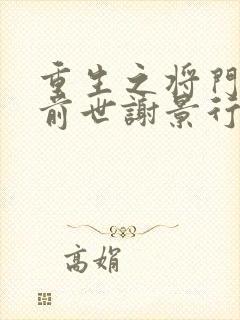 重生之将門
前世謝景行
高娟